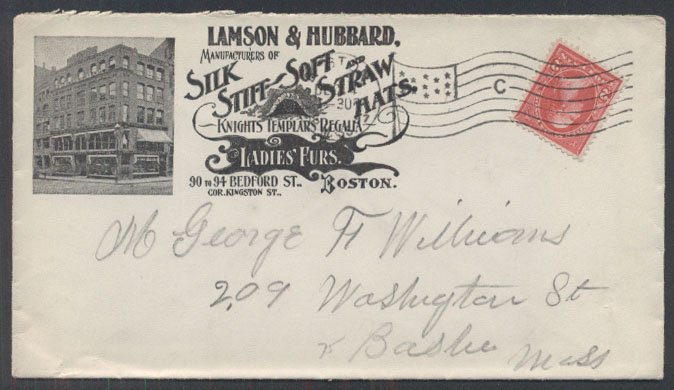 LAMSON & HUBBARD,
MANUFACTURERS OF
SILK
STIFF–SOFT AND
STRAW
HATS.
KNIGHTS TEMPLARS' REGALIA
LADIES' FURS.
90 TO 94 BEDFORD ST.,
COR. KINGSTON ST.,
BOSTON.
C
M George F Williams
209 Washington St
Mass